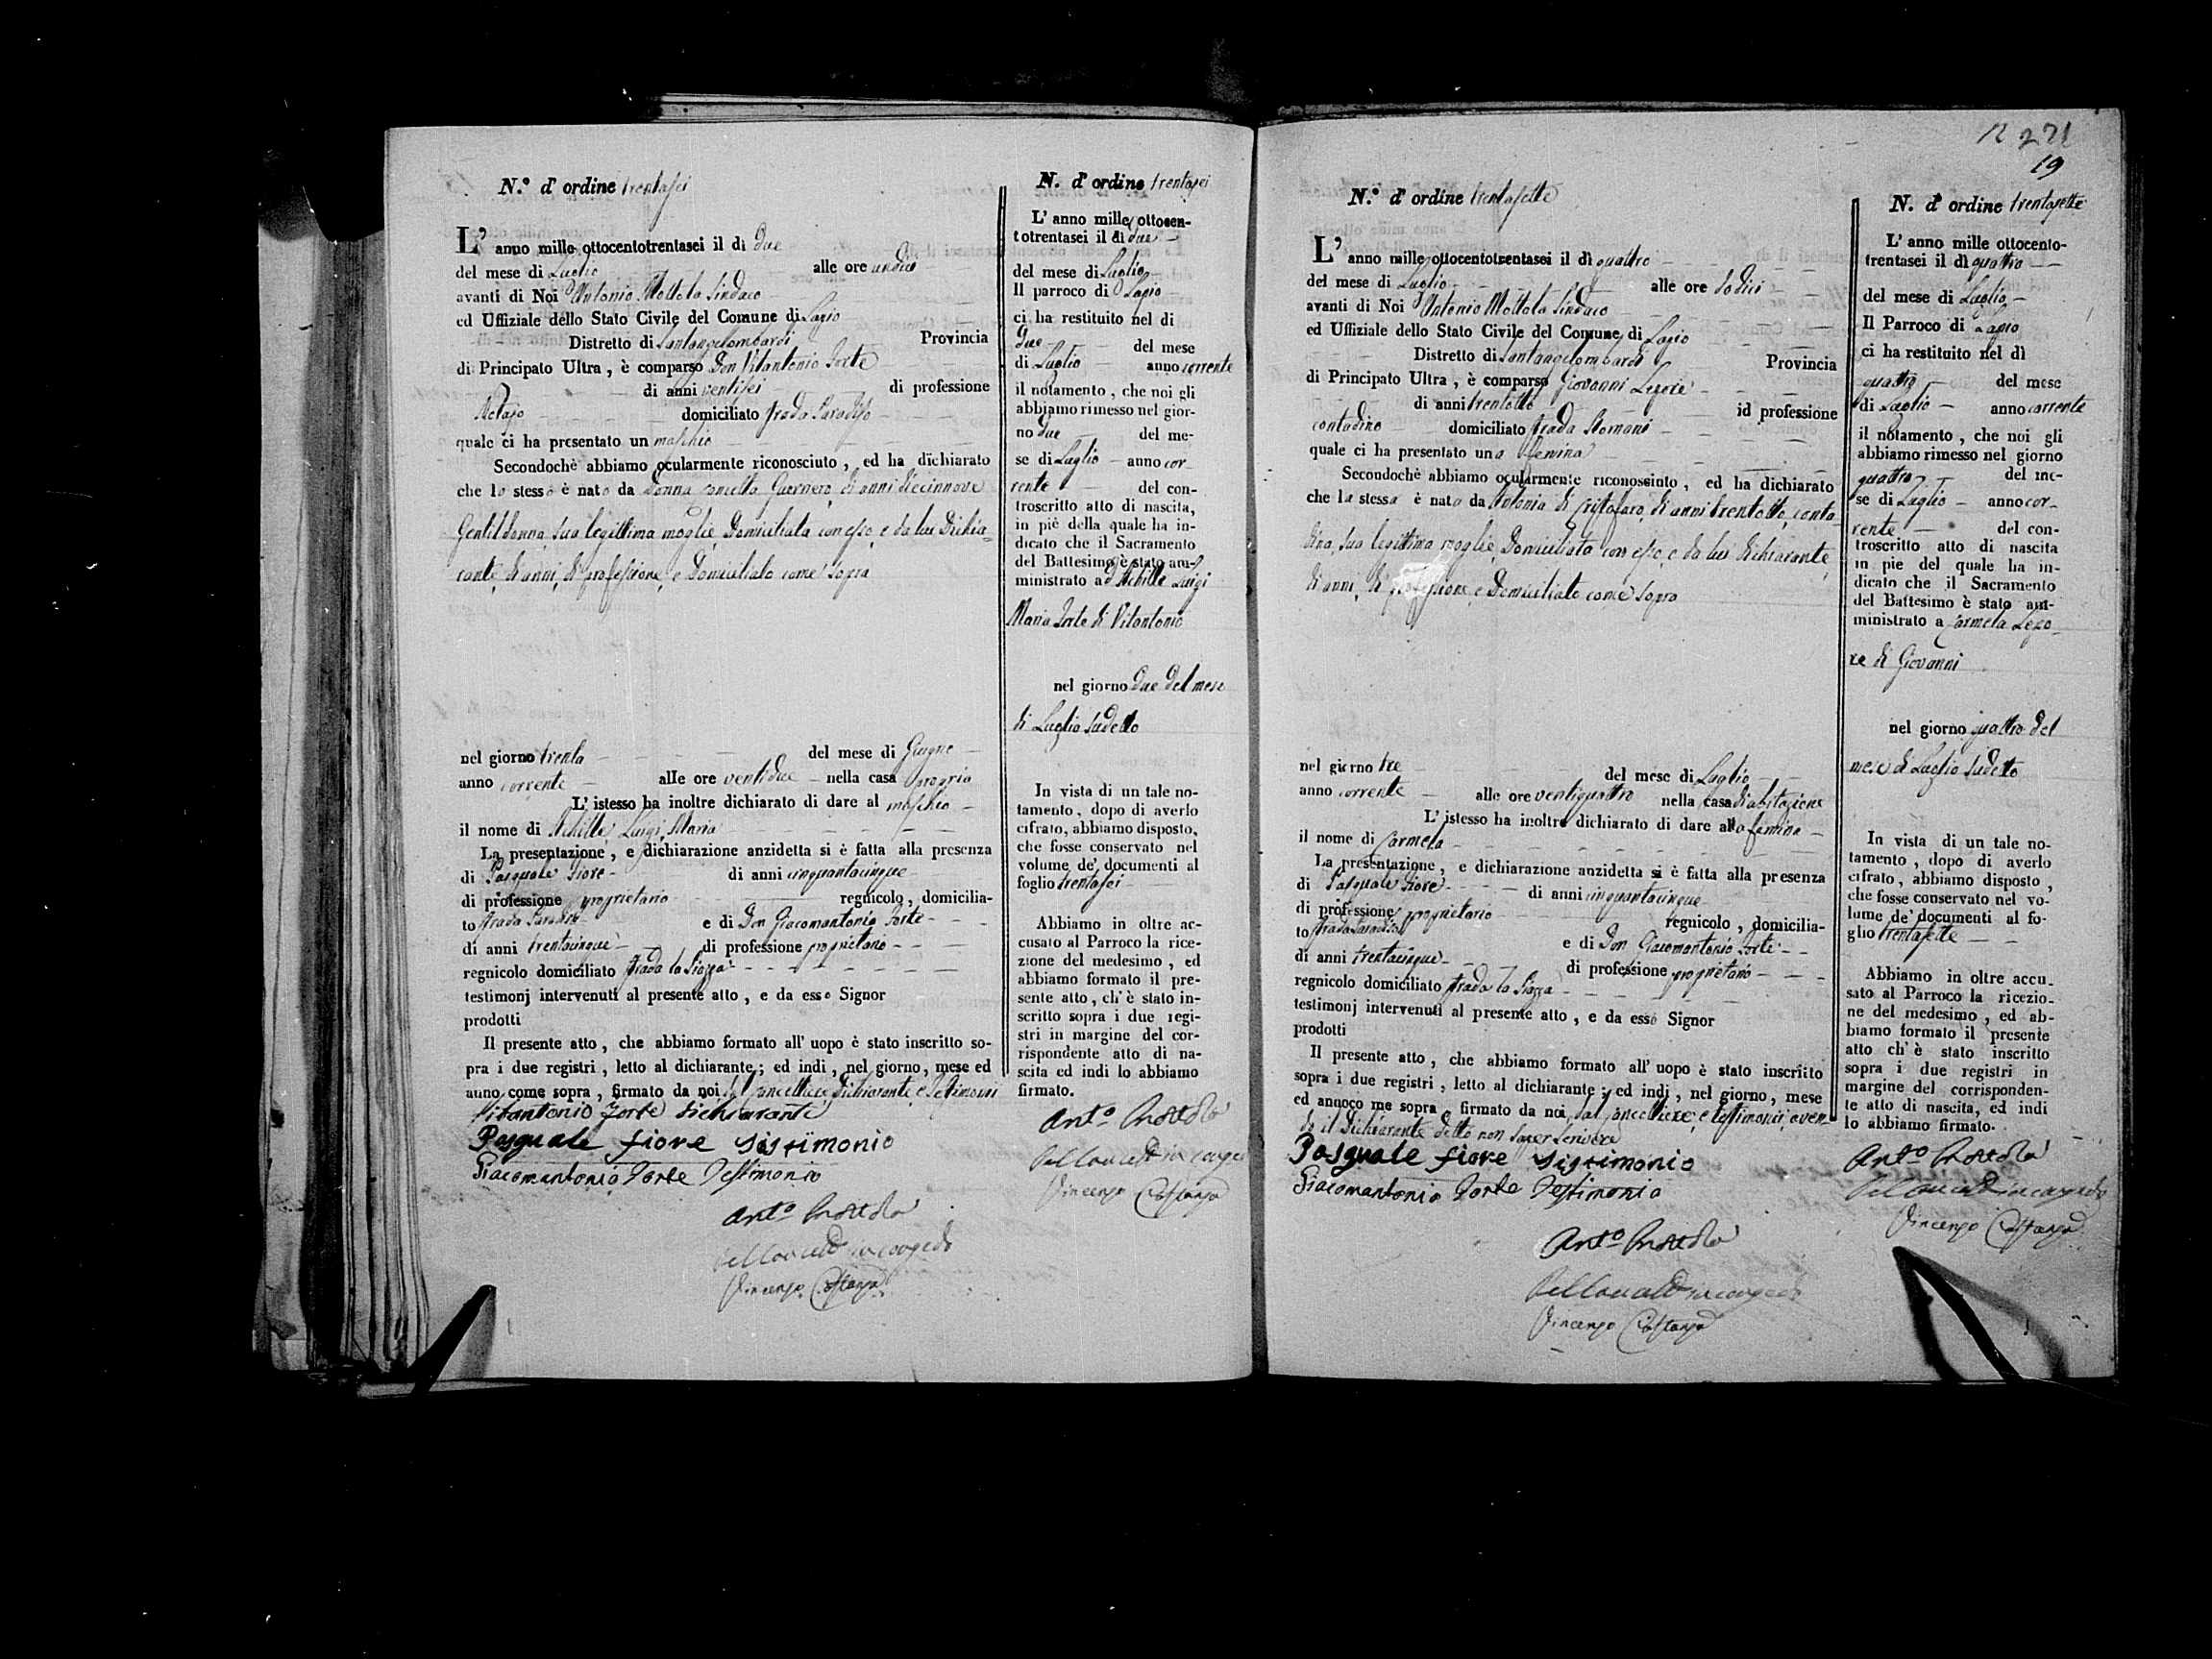 N.° d' ordine trentasei
L' anno mille ottocentotrentasei il dì due
del mese di Luglio alle ore undici
avanti di Noi Antonio Mottola Sindaco
ed Uffiziale dello Stato Civile del Comune di Lapio
Distretto di Santangelombardi Provincia
di Principato Ultra, è comparso Don Vitantonio Forte
di anni ventisei di professione
Notajo domiciliato strada Paradiso
quale ci ha presentato un maschio
Secondochè abbiamo ocularmente riconosciuto, ed ha dichiarato
che lo stesso è nato da Donna Concetta di anni diecinnove
Gentildonna, sua legittima moglie, Domiciliata con esso, e da lui Dichia=
rante, di anni, di professione, e Domiciliato come sopra
nel giorno trenta del mese di Giugno
anno corrente alle ore ventidue nella casa propria
L' istesso ha inoltre dichiarato di dare al maschio
il nome di Achille Luigi Maria
La presentazione, e dichiarazione anzidetta si è fatta alla presenza
di Pasquale Fiore di anni cinquantacinque
di professione proprietario regnicolo, domicilia-
to strada Paradiso e di Don Giacomantonio Forte
di anni trentacinque di professione proprietario
regnicolo domiciliato strada la Piazza
testimonj intervenuti al presente atto, e da esso Signor
prodotti
Il presente atto, che abbiamo formato all' uopo è stato inscritto so-
pra i due registri, letto al dichiarante; ed indi, nel giorno, mese ed
anno come sopra, firmato da noi dal Cancelliere, Dichiarante, e Testimonj
Vitantonio Forte dichiarante
Pasquale fiore sistimonio
Giacomantonio Forte Testimonio
Ant.° Mottola
Vincenzo Costanza
N. d' ordine trentasei
L' anno mille ottocen-
totrentasei il dì due
del mese di Luglio
Il parroco di Lapio
ci ha restituito nel di
due del mese
di Luglio anno corrente
il notamento, che noi gli
abbiamo rimesso nel gior-
no due del me-
se di Luglio anno cor-
rente del con-
troscritto atto di nascita,
in piè della quale ha in-
dicato che il Sacramento
del Battesimo è stato am-
ministrato ad Achille Luigi
Maria Forte di Vitantonio
nel giorno due del mese
di Luglio sudetto
In vista di un tale no-
tamento, dopo di averlo
cifrato, abbiamo disposto,
che fosse conservato nel
volume de' documenti al
foglio trentasei
Abbiamo in oltre ac-
cusato al Parroco la rice-
zione del medesimo, ed
abbiamo formato il pre-
sente atto, ch' è stato in-
scritto sopra i due regi-
stri in margine del cor-
rispondente atto di na-
scita ed indi lo abbiamo
firmato.
Ant.° Mottola
Vincenzo Costanza
12 221
19
N.° d' ordine trentasette
L' anno mille ottocentotrentasei il dì quattro
del mese di Luglio alle ore dodici
avanti di Noi Antonio Mottola Sindaco
ed Uffiziale dello Stato Civile del Comune di Lapio
Distretto di Santangelombardi Provincia
di Principato Ultra, è comparso Giovanni Lepore
di anni trentotto id professione
contadino domiciliato strada Romani
quale ci ha presentato una femina
Secondochè abbiamo ocularmente riconosciuto, ed ha dichiarato
che la stessa è nata da Antonia di Cristofaro, di anni trentotto, conta
dina, sua legittima moglie, Domiciliata con esso, e da lui dichiarante,
di anni, di professione, e Domiciliato come sopra
nel giorno tre del mese di Luglio
anno corrente alle ore ventiquattro nella casa di abitazione
L' istesso ha inoltre dichiarato di dare alla femina
il nome di Carmela
La presentazione, e dichiarazione anzidetta si è fatta alla presenza
di Pasquale Fiore di anni cinquantacinque
di professione proprietario regnicolo, domicilia-
to strada Paradiso e di Don Giacomantonio Forte
di anni trentacinque di professione proprietario
regnicolo domiciliato strada la Piazza
testimonj intervenuti al presente atto, e da esso Signor
prodotti
Il presente atto, che abbiamo formato all' uopo è stato inscritto
sopra i due registri, letto al dichiarante; ed indi, nel giorno, mese
ed annoco me sopra, firmato da noi, dal Cancelliere, e testimonj, aven-
do il Dichiarante detto non saper scrivere
Pasquale fiore sistimonio
Giacomantonio Forte Testimonio
Ant.° Mottola
Vincenzo Costanza
N. d' ordine trentasette
L' anno mille ottocento-
trentasei il dì quattro
del mese di Luglio
Il Parroco di Lapio
ci ha restituito nel dì
quattro del mese
di Luglio anno corrente
il notamento, che noi gli
abbiamo rimesso nel giorno
quattro del me-
se di Luglio anno cor-
rente del con-
troscritto atto di nascita
in pie del quale ha in-
dicato che il Sacramento
del Battesimo è stato am-
ministrato a Carmela Lepo-
re di Giovanni
nel giorno quattro del
mese di Luglio sudetto
In vista di un tale no-
tamento, dopo di averlo
cifrato, abbiamo disposto,
che fosse conservato nel vo-
lume de' documenti al fo-
glio trentasette
Abbiamo in oltre accu-
sato al Parroco la ricezio-
ne del medesimo, ed ab-
biamo formato il presente
atto ch' è stato inscritto
sopra i due registri in
margine del corrisponden-
te atto di nascita, ed indi
lo abbiamo firmato.
Ant.° Mottola
Vincenzo Costanza